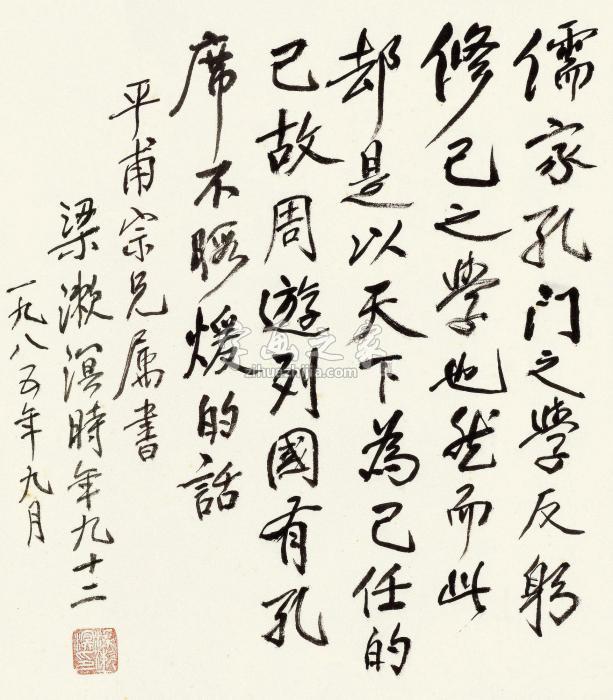 儒家孔門之學反躬
修己之學也然而此
却是以天下為己任的
已故周遊列國有孔
席不暇煖的話
平甫宗兄屬書
梁漱溟時年九十二
一九八五年九月
字画之家
zihuazhijia.com